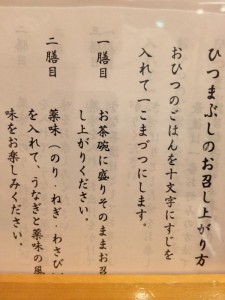 ひつまぶしのお召し上がり方
おひつのごはんを十文字にすじを
入れて一こまづつにします。
一膳目
お茶碗に盛りそのままお召
し上がりください。
二膳目
薬味（のり・ねぎ・わさび
を入れて、うなぎと薬味の風
味をお楽しみください。